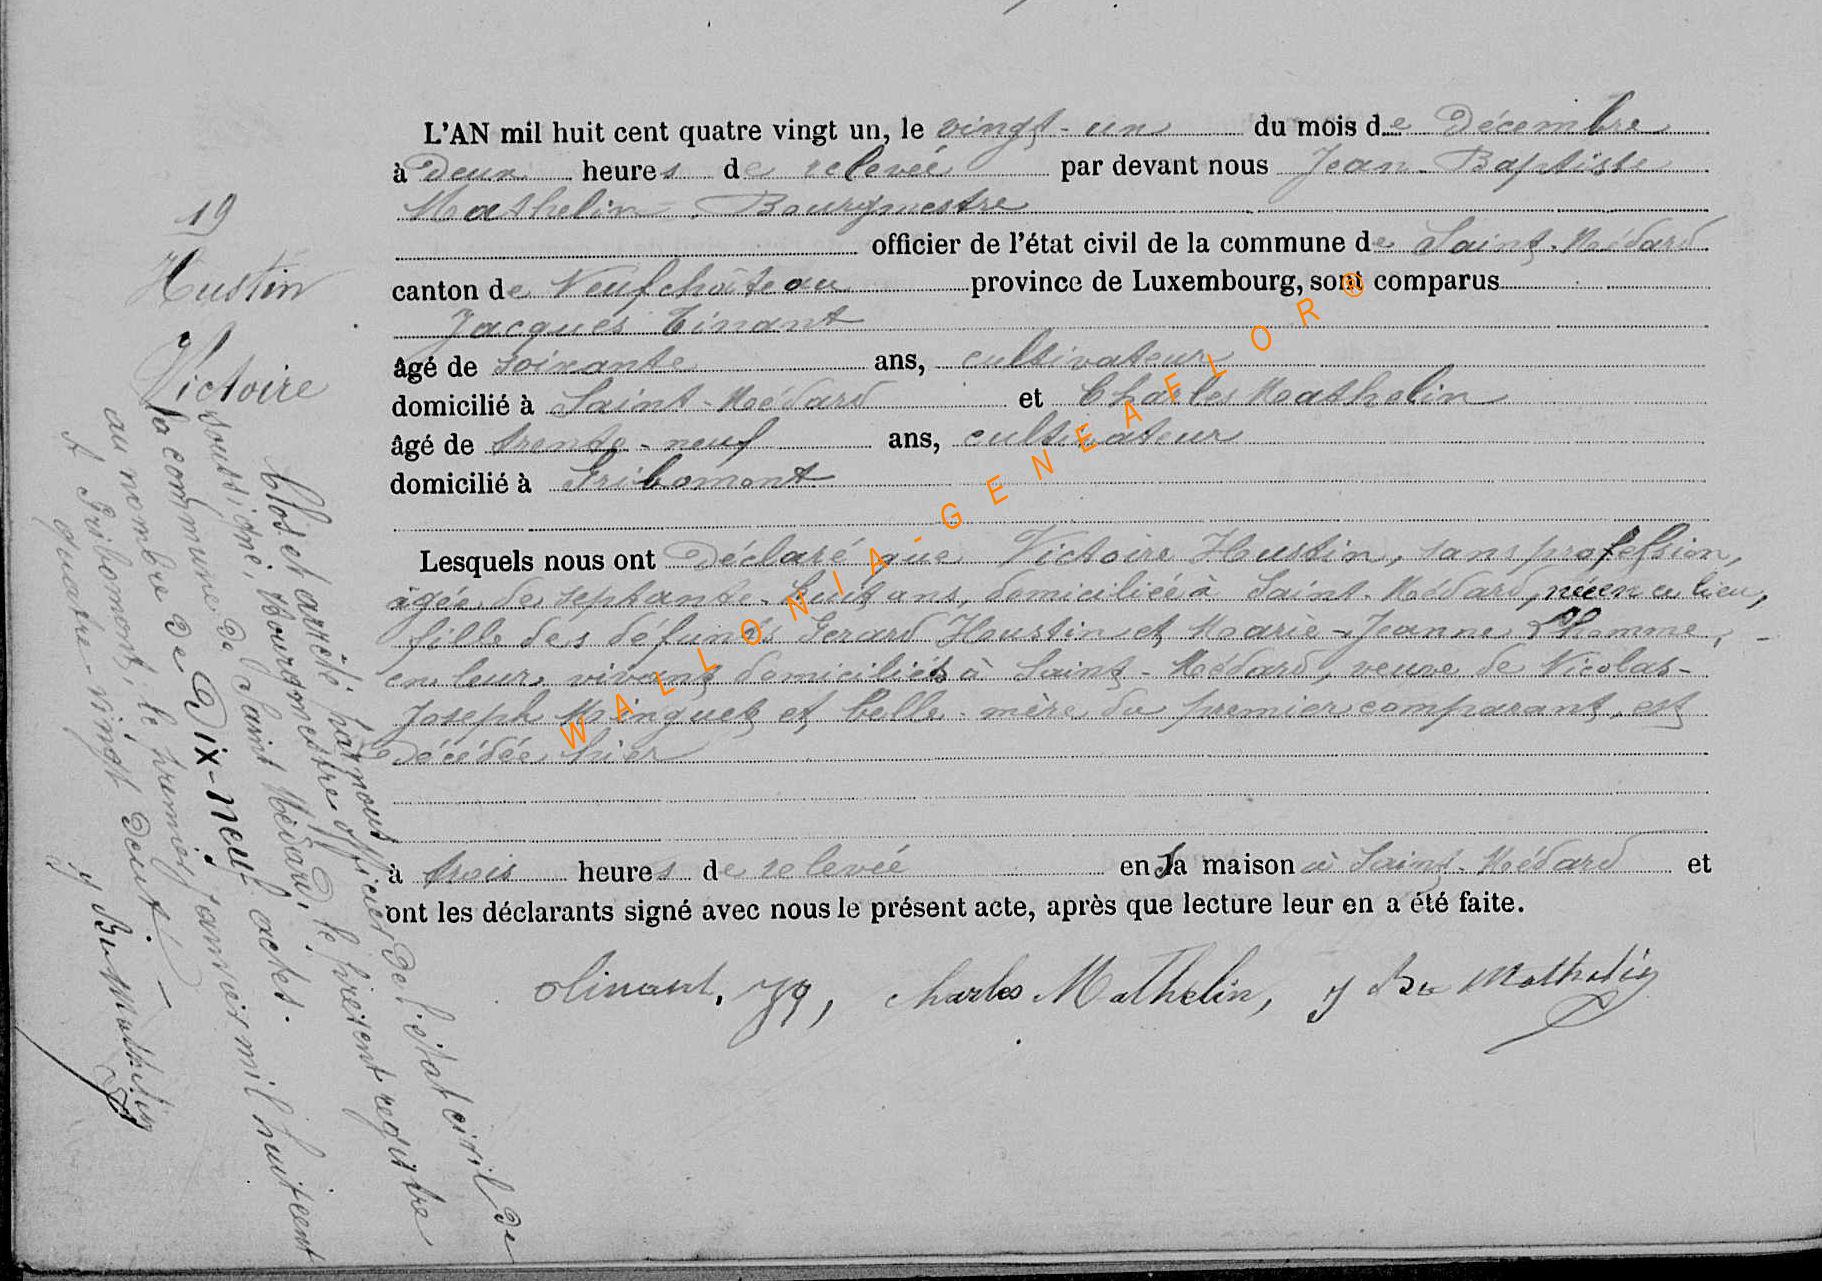 L'AN mil huit cent quatre vingt un, le vingt-un du mois de Décembre
à Deux heures de relevée par devant nous Jean-Baptiste
Mathelin, Bourgmestre
officier de l'état civil de la commune de Saint-Médard
canton de Neufchâteau province de Luxembourg, sont comparus
Jacques Tinant
âgé de soixante ans, cultivateur
domicilié à Saint-Médard et Charles Mathelin
âgé de trente-neuf ans, cultivateur
domicilié à Gribomont
Lesquels nous ont Déclaré que Victoire Hustin, sans profession,
âgée de septante-huit ans, domiciliée à Saint-Médard, née en ce lieu,
fille des défunts Gerard Hustin et Marie-Jeanne Lhomme,
en leur vivant domiciliés à Saint-Médard, veuve de Nicolas-
Joseph Minguet et belle-mère du premier comparant, est
décédée hier
à trois heures de relevée en sa maison à Saint-Médard et
ont les déclarants signé avec nous le présent acte, après que lecture leur en a été faite.
Tinant, Jq, Charles Mathelin, J Bte Mathelin
19
Hustin
Victoire
Clos et arrêté par nous
soussigné, Bourgmestre officier de l'état civil de
la commune de Saint Médard, le présent registre
au nombre de Dix-neuf actes.
A Gribomont, le premier janvier mil huit cent
quatre-vingt deux.
J Bte Mathelin
WALLONIA-GENEAFLOR®